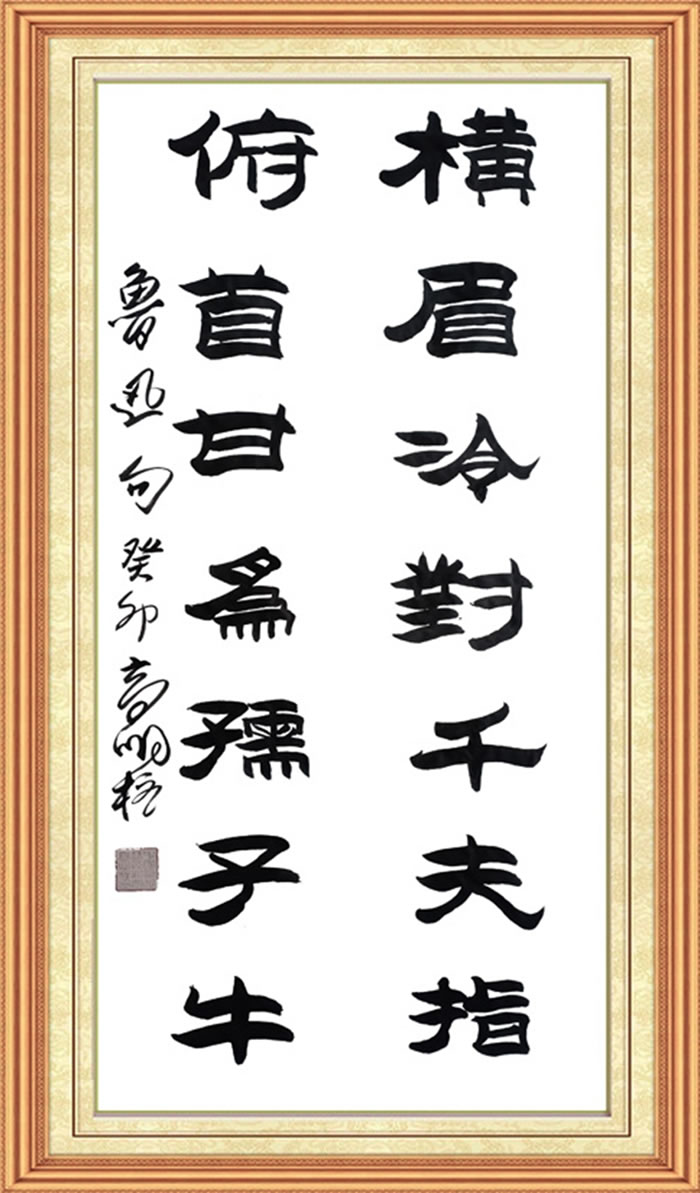 橫眉冷對千夫指
俯首甘爲孺子牛
魯迅句癸卯高明